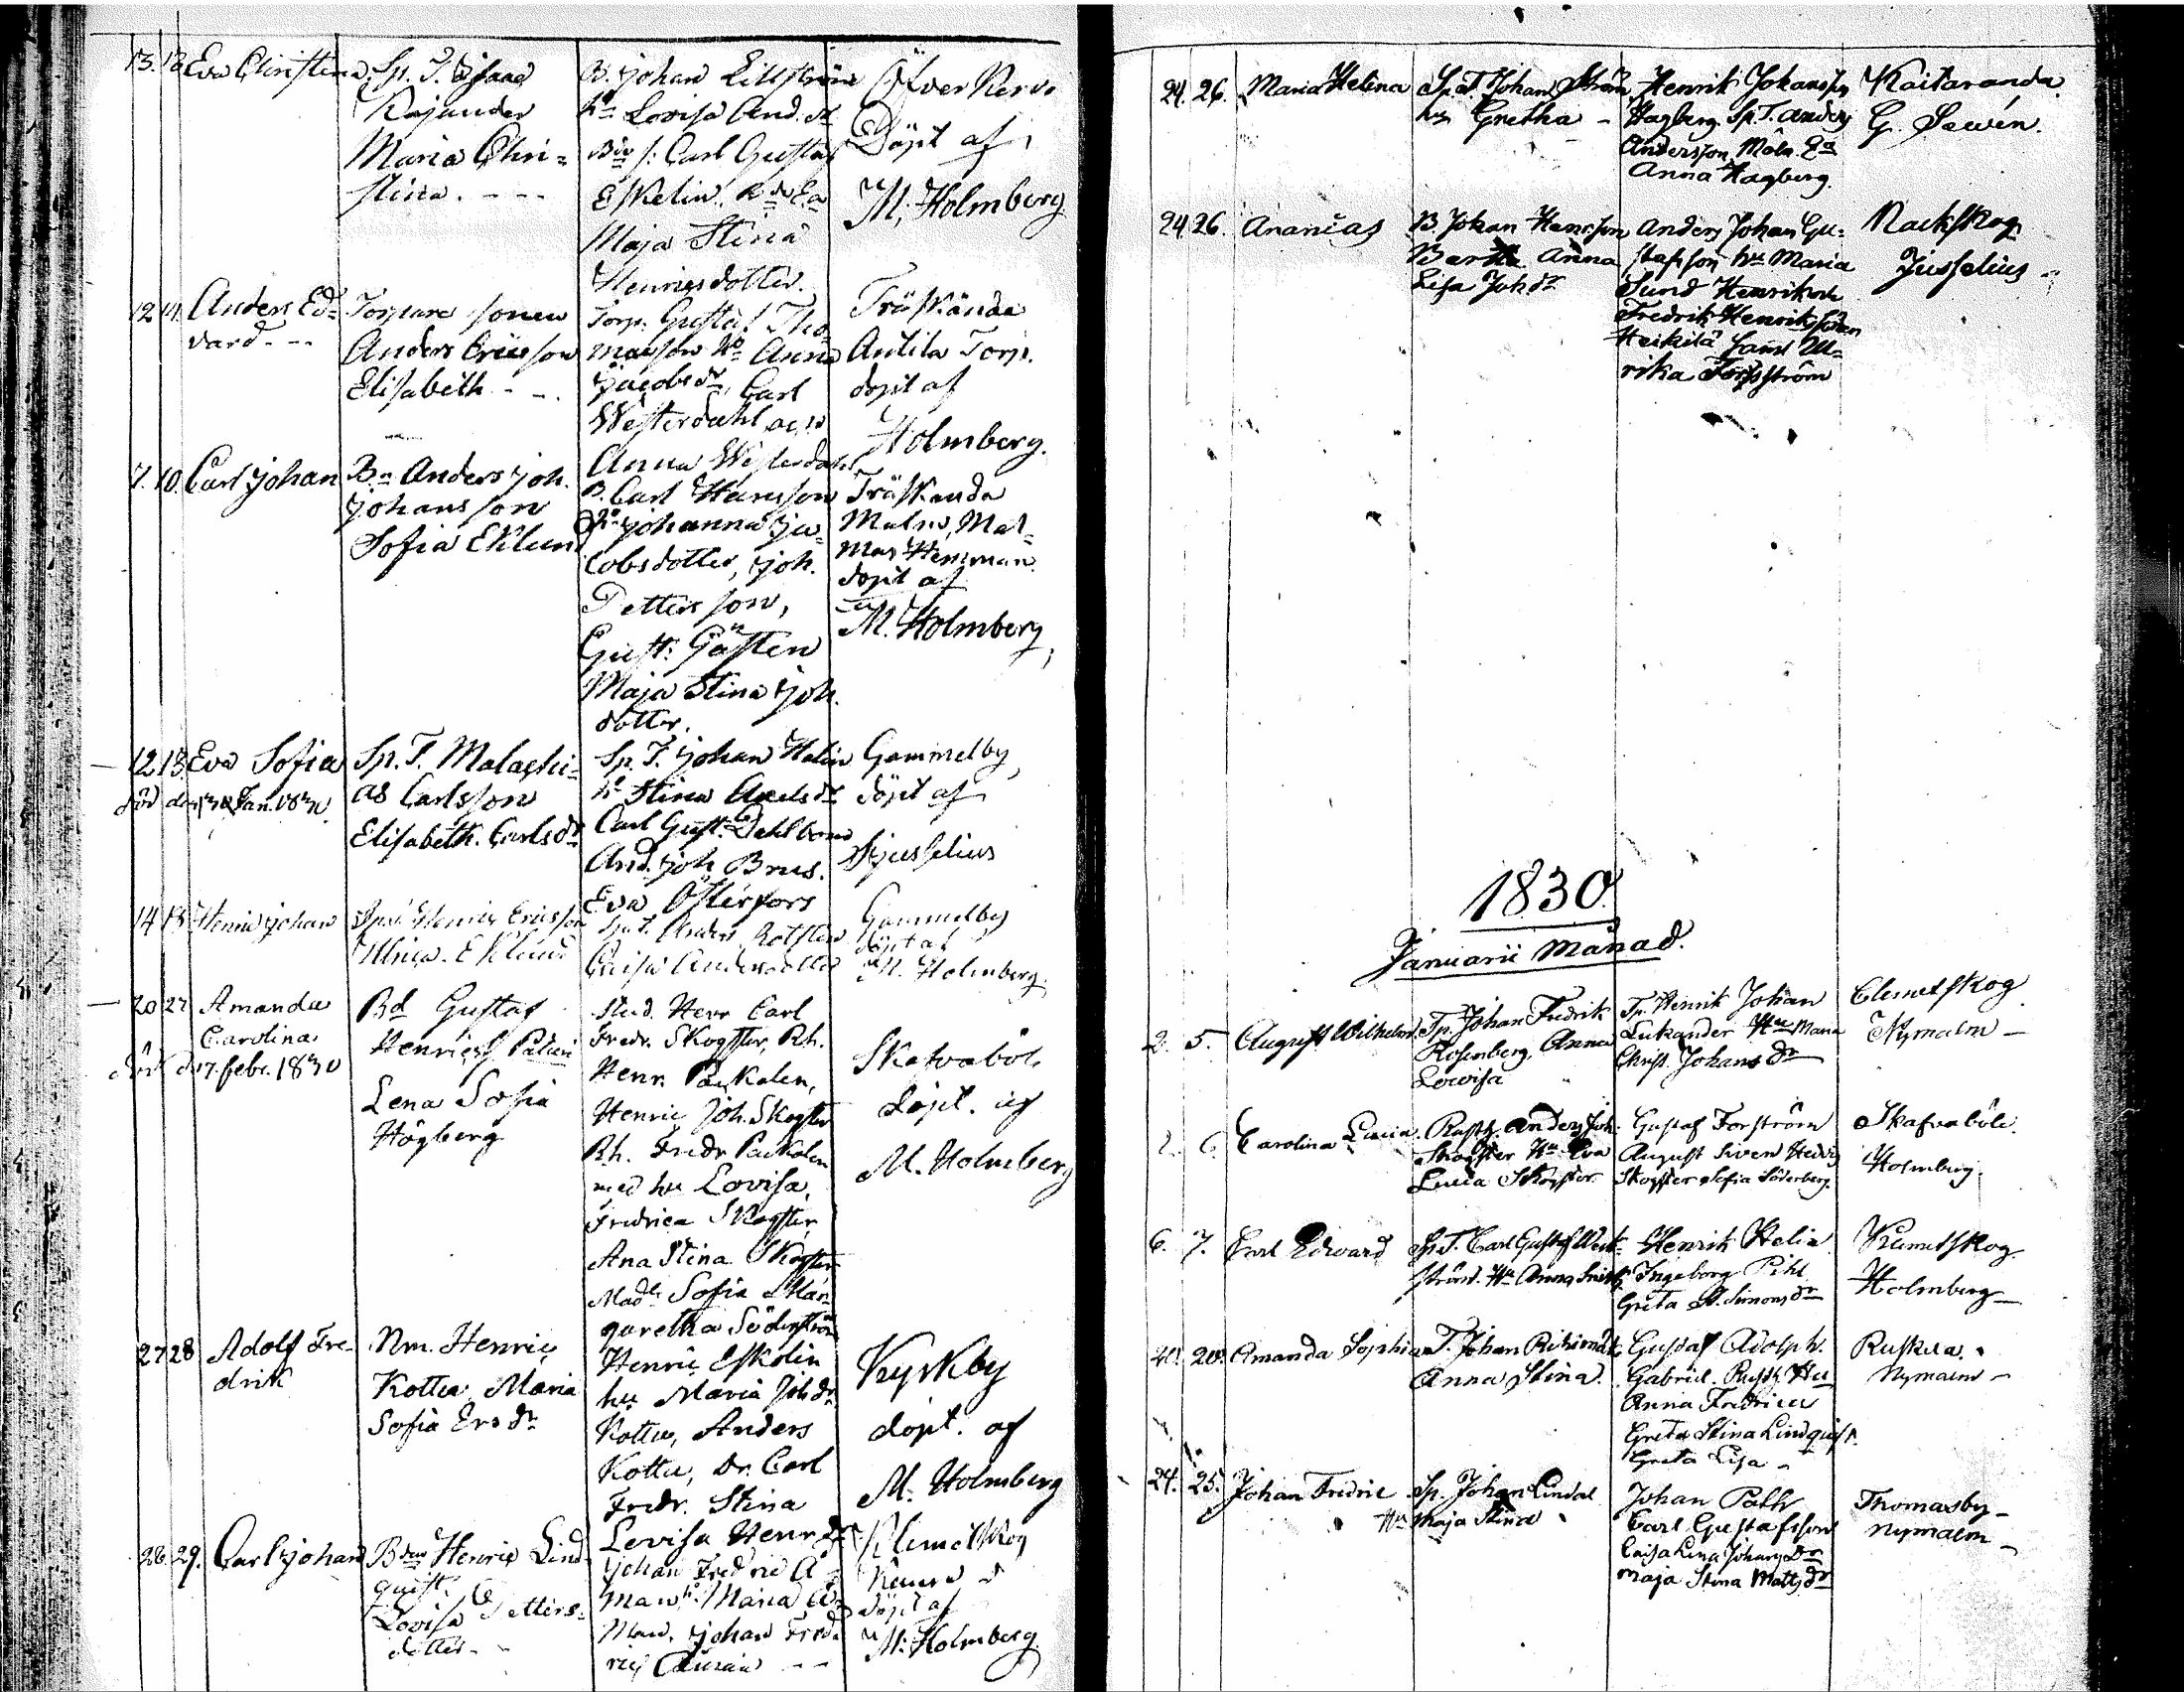 13. 13. Eva Christina
Sp. T. Isaac
Kajander
Maria Chri=
stina. - - -
B. Johan Lillström
hu Lovisa And. dr
Carl Gustaf
Eskelin
Maja Stina
Henricsdotter.
Öfver Kervo
Döpt af
M. Holmberg
12 14. Anders Ed=
vard - -
Torpare sonen
Anders Ericsson
Elisabeth - -
Torp. Gustaf Tho
masson Hu Anna
Jacobsdr, Carl
Westerdahl
Anna Westerdahl
Träskända
Anttila Torp.
döpt af
Holmberg.
7. 10. Carl Johan
Bn Anders Joh.
Johansson
Sofia Eklund
B. Carl Henrsson
Hu Johanna Ja=
cobsdotter, Joh.
Pettersson,
Gust: Gästen
Maja Stina Joh.
dotter.
Träskända
Malm, Mal=
mas Hemman
döpt af
M. Holmberg,
12 13. Eva Sofia
död den Jan. 1830.
Sp. T. Malachi=
as Carlsson
Elisabeth. Carlsdr
Sp. T. Johan Helin
hu Stina Axelsdr
Carl Gust. Dahlbom
And. Joh Brus.
Eva Österfors
Gammelby,
döpt af
Jusselius
14 15 Henric Johan
Henric Ericsson
Ulrica Eklund
Sp. T. Anders Rotsten
Caisa Andersdotter
Gammelby
döpt af
M. Holmberg.
20 27 Amanda
Carolina
död d 17. febr. 1830
Bd Gustaf
Henricss
Lena Sofia
Högberg
Stud. Herr Carl
Fredr. Skogster, Rh.
Henr. Paikalen,
Henric Joh. Skogster
Rh. Fredr Paikalen
med hu Lovisa,
Fredrica Skogster,
Ana Stina Skogster
Madlle Sofia Mar=
garetha Söderström
Skafvaböle
döpt. af
M. Holmberg
27 28 Adolf Fre-
drik
Nm. Henric
Kottu, Maria
Sofia Ersdr
Henric Eskolin
hu Maria Johdr
Kottu, Anders
Kottu, Dr. Carl
Fredr. Stina
Lovisa Henrdr
Kyrkby
döpt. af
M. Holmberg
28. 29. Carl Johan
Henric Lind
quist.
Lovisa Petters=
dotter -
Johan Fredric Å=
man hu Maria Å=
man, Johan Fred
ric
Klemetskog
döpt af
M. Holmberg
24. 26. Maria Helena
Sp. T. Johan Ström
hu Gretha -
Henrik Johansson
Hagberg Sp. T. Anders
Andersson Möln. Ea
Anna Hagberg.
Kaitaranda.
G. Sewén.
24. 26. Ananias
B. Johan Henrsson
Anna
Lisa Joh dr
Anders Johan Gu=
stafsson hu Maria
Sund Henriksdr
Fredrik Henriksson
Heikilä samt Ul=
rika Forsström
Nackskog
Jusselius -
1830.
Januarii Månad.
2. 5. August Wilhelm
Tp. Johan Fredrik
Rosenberg, Anna
Lovisa
Tp. Henrik Johan
Lukander Hu Maria
Christ. Johans dr
Clemetskog
Nymalm -
2. 6. Carolina Lucia
Rusth. Anders Joh:
Skogster Hu Eva
Lucia Skogster.
Gustaf Forström
August Siven Hedvig
Skogster Sofia Söderberg.
Skafvaböle.
Holmberg.
6. 7. Carl Edvard
Sp. T. Carl Gustaf West=
ström. Hu Anna
Henrik Helin
Ingeborg Pihl
Greta St. Simonsdr
Klemetskog.
Holmberg -
20. Amanda Sophia
T. Johan
Anna Stina.
Gustaf Adolph.
Gabriel. Rusth. Hu
Anna Fredrica
Greta Stina Lindquist.
Greta Lisa -
Ruskela.
Nymalm -
24. 25. Johan Fredric
Sp. Johan Lindal
Hu Maja Stina
Johan Path
Carl Gustafsson
Caisa Lena Johans Dr
Maja Stina Matts dr
Thomasby -
Nymalm -